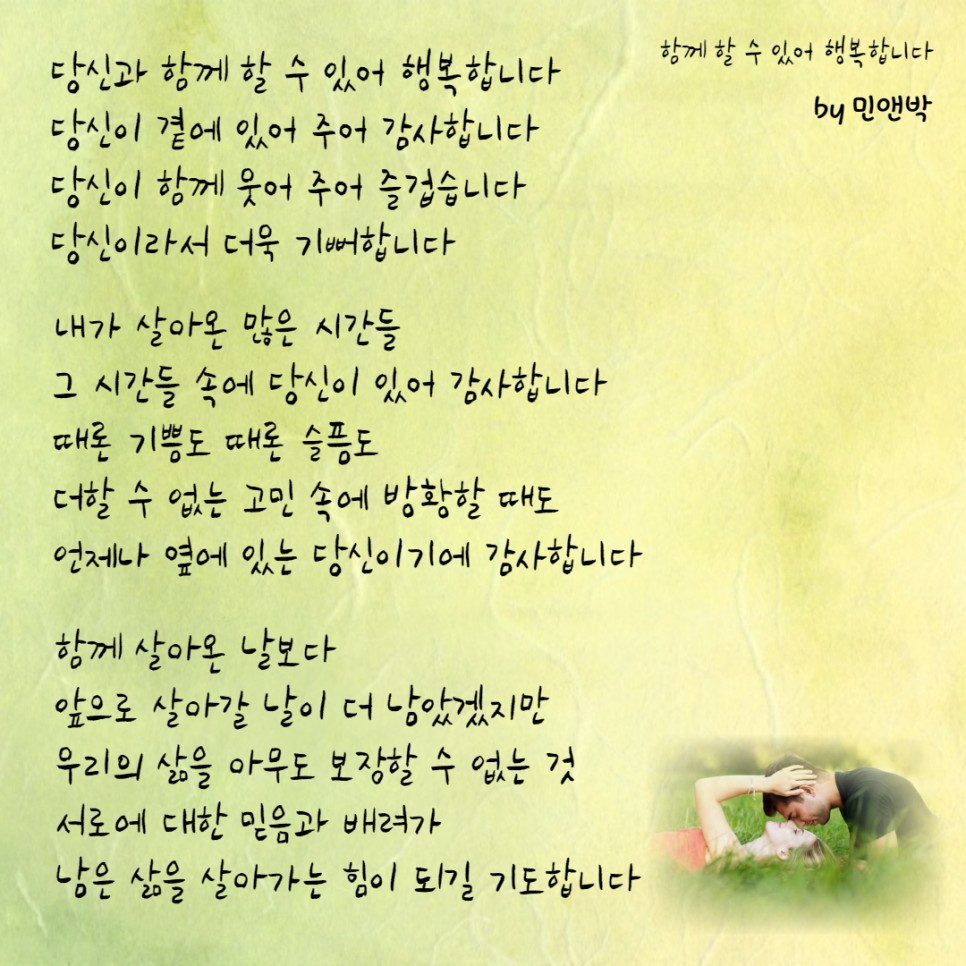 함께 할 수 있어 행복합니다
by 민앤박
당신과 함께 할 수 있어 행복합니다
당신이 곁에 있어 주어 감사합니다
당신이 함께 웃어 주어 즐겁습니다
당신이라서 더욱 기뻐합니다
내가 살아온 많은 시간들
그 시간들 속에 당신이 있어 감사합니다
때론 기쁨도 때론 슬픔도
더할 수 없는 고민 속에 방황할 때도
언제나 옆에 있는 당신이기에 감사합니다
함께 살아온 날보다
앞으로 살아갈 날이 더 남았겠지만
우리의 삶을 아무도 보장할 수 없는 것
서로에 대한 믿음과 배려가
남은 삶을 살아가는 힘이 되길 기도합니다